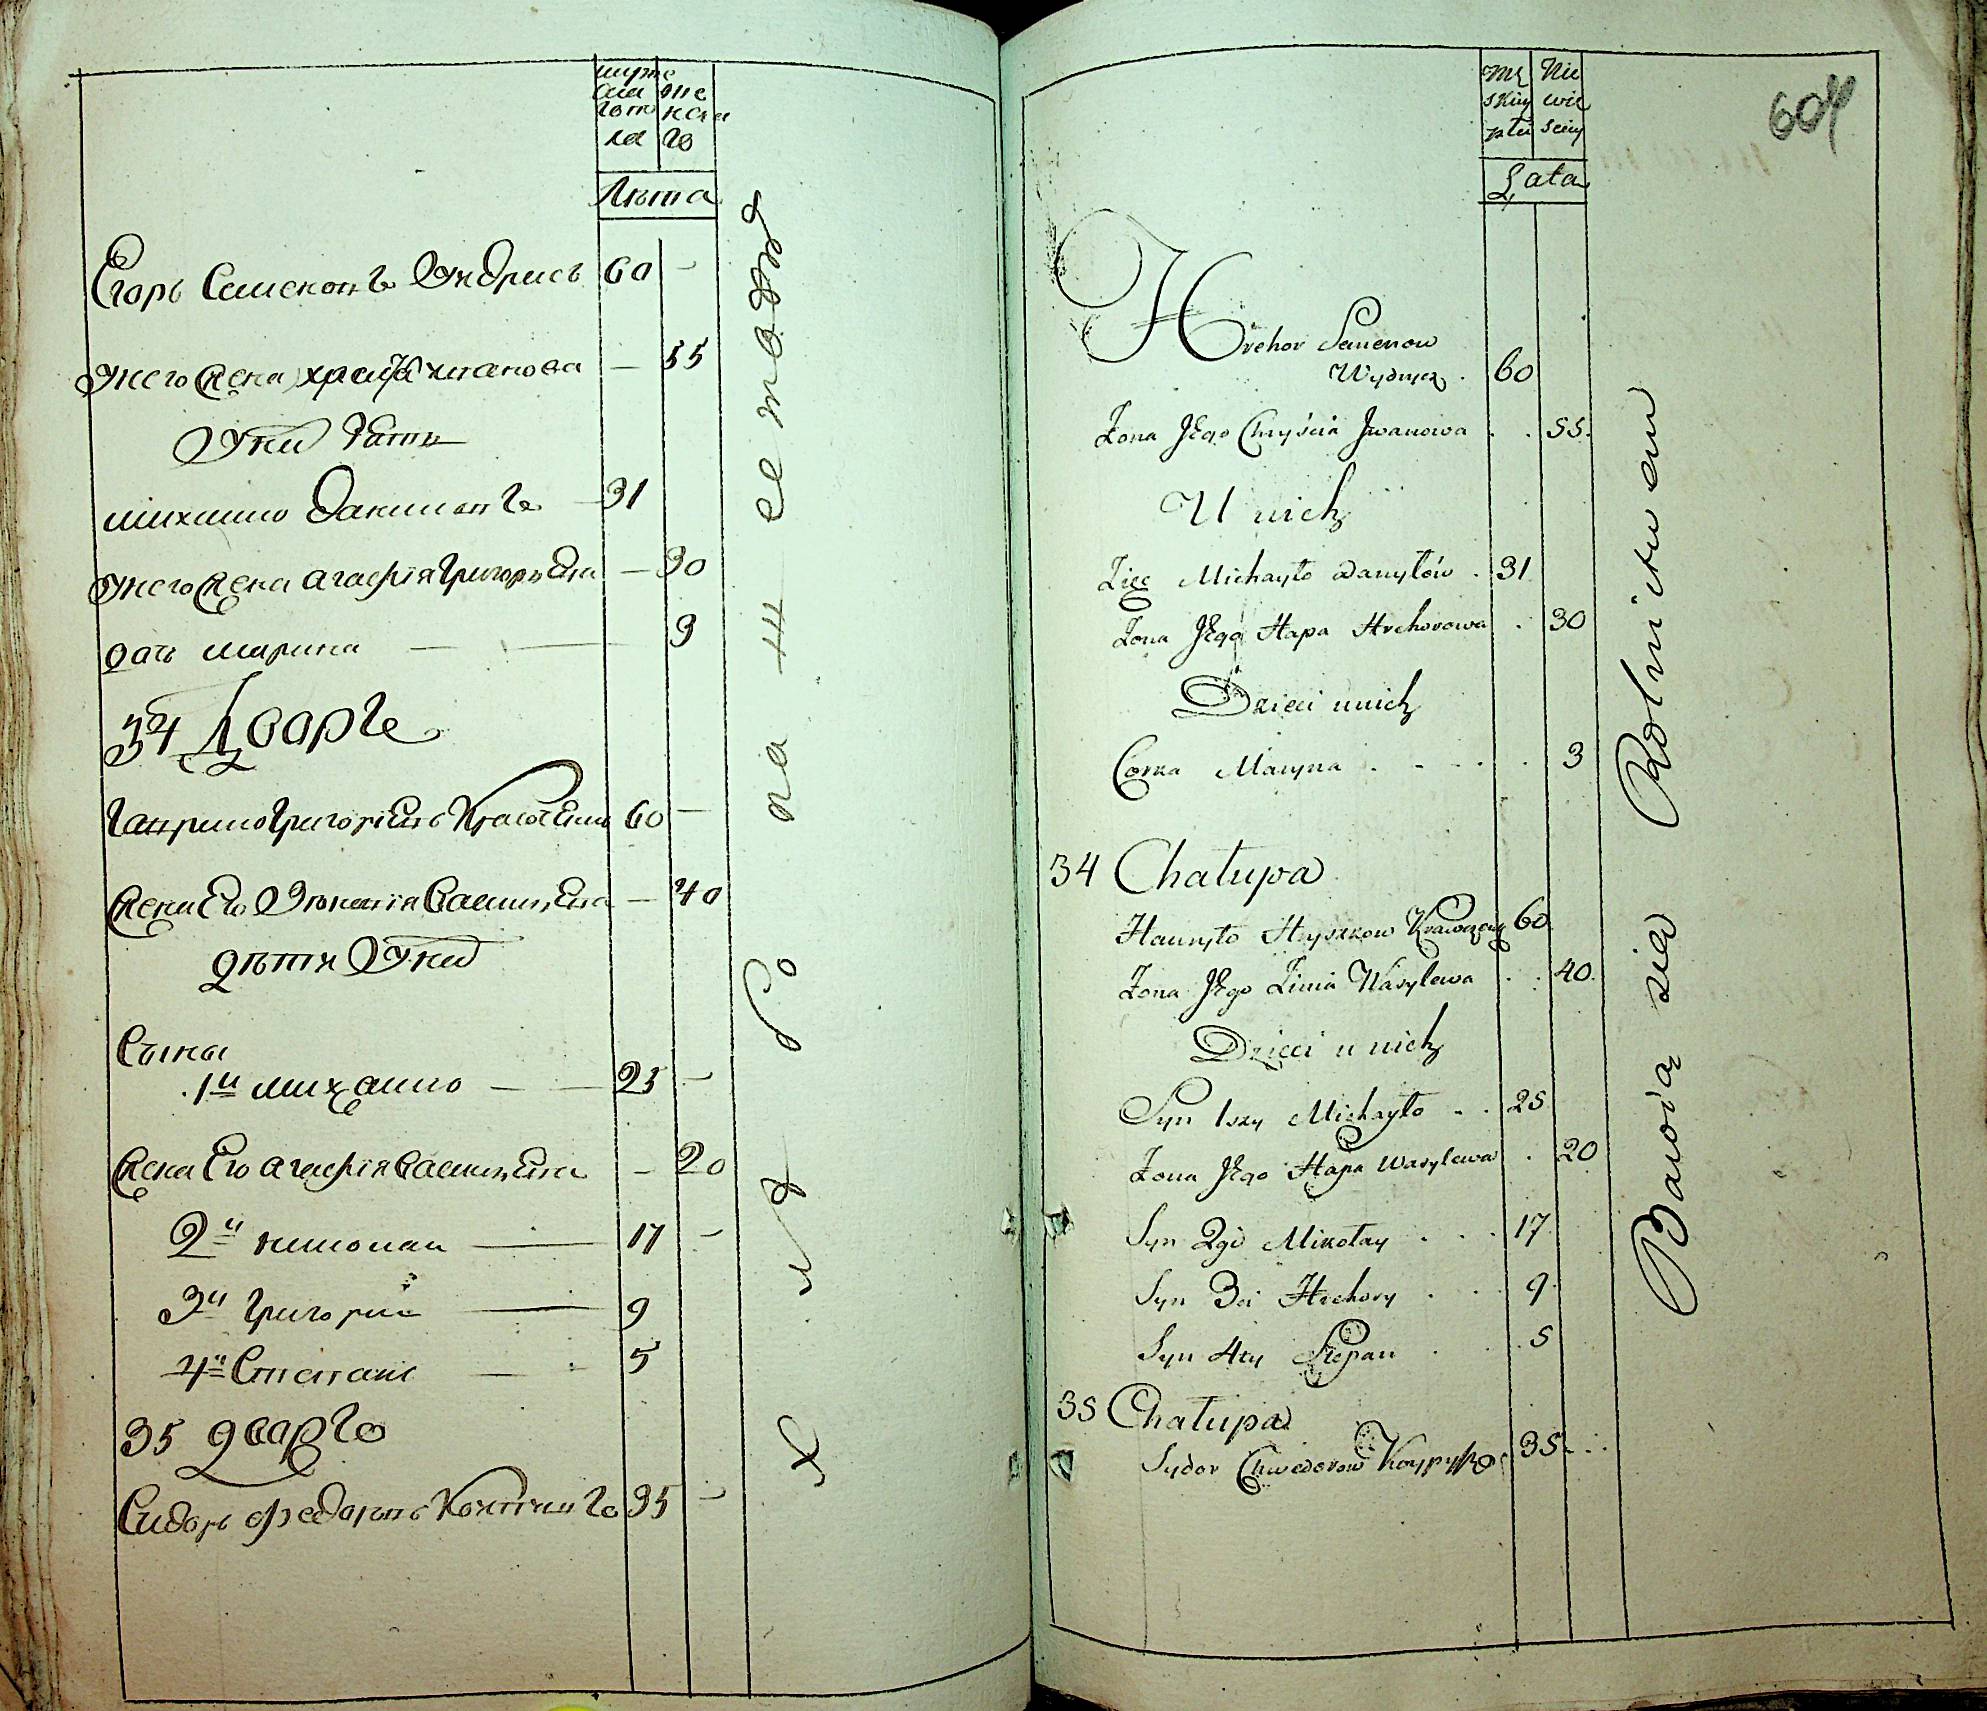 муже
ска
го по
ла
же
нска
го
Лѣта
Егоръ Семеновъ Выдрисъ 60 —
Жена — 55
Унихъ Зять
Михайло Даниловъ — 31
Унего жена Агафія Григорьева — 30
дочь Марина — 3
34 Дворъ
Гаврило Григорьевъ 60 —
жена Его Зѣновія Васильева — 40
дѣти Унихъ
Сыны
1й Михайло — 25 —
жена Его Агафія Васильева — 20
2й Николай — 17 —
3й Григорий — 9
4й Степанъ — 5
35 дворъ
Сидоръ Федоровъ 35 —
хлѣбопашествомъ
604
Mę
skiey
płci
Nie
wie
sciey
Łata
Hrehor Semenow
Wydrycz . 60
Żona Jego Chryścia Jwanowa . . 55.
U nich
Zięć Michayło Danyłów . 31
Żona Jego Hapa Hrehorowa . 30
Dzieci unich
Corka Maryna . - - - . . 3
34 Chałupa
Hauryło Hryszkow Krawczeńq 60
Żona Jego Zinia Wasylewa . . 40.
Dzieci u nich
Syn 1szy Michayło . . 25
Żona Jego Hapa Wasylewa . 20
Syn 2gi Mikołay . . . 17
Syn 3ci Hrehory . . . 9.
Syn 4ty Stepan . . . 5
35 Chałupa
Sydor Chwedorow 35 . . .
Bawią się Rolnictwem